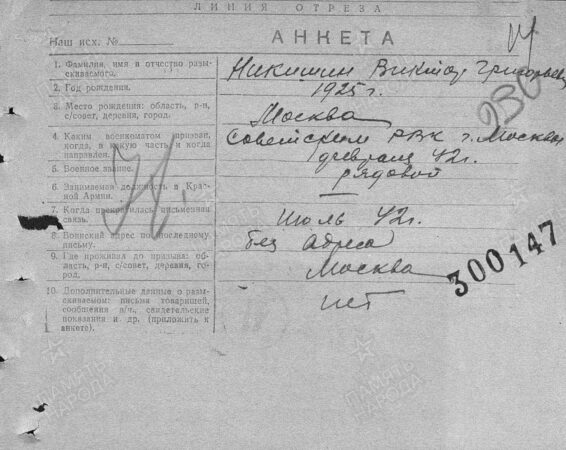 ЛИНИЯ ОТРЕЗА
Наш исх. №
АНКЕТА
1. Фамилия, имя и отчество разы-
скиваемого.
Никишин Виктор Григорьевич
2. Год рождения.
1925 г.
3. Место рождения: область, р-н,
с/совет, деревня, город.
Москва
230
4. Каким военкоматом призван,
когда, в какую часть и когда
направлен.
Советским РВК г. Москвы
февраль 42 г.
5. Военное звание.
рядовой
6. Занимаемая должность в Крас-
ной Армии.
—
7. Когда прекратилась письменная
связь.
Июль 42 г.
8. Воинский адрес по последнему
письму.
без адреса
9. Где проживал до призыва: об-
ласть, р-н, с/совет, деревня, го-
род.
Москва
300147
10. Дополнительные данные о разы-
скиваемом: письма товарищей,
сообщения в/ч., свидетельские
показания и др. (приложить к
анкете).
нет
ПАМЯТЬ
НАРОДА
ПАМЯТЬ
НАРОДА